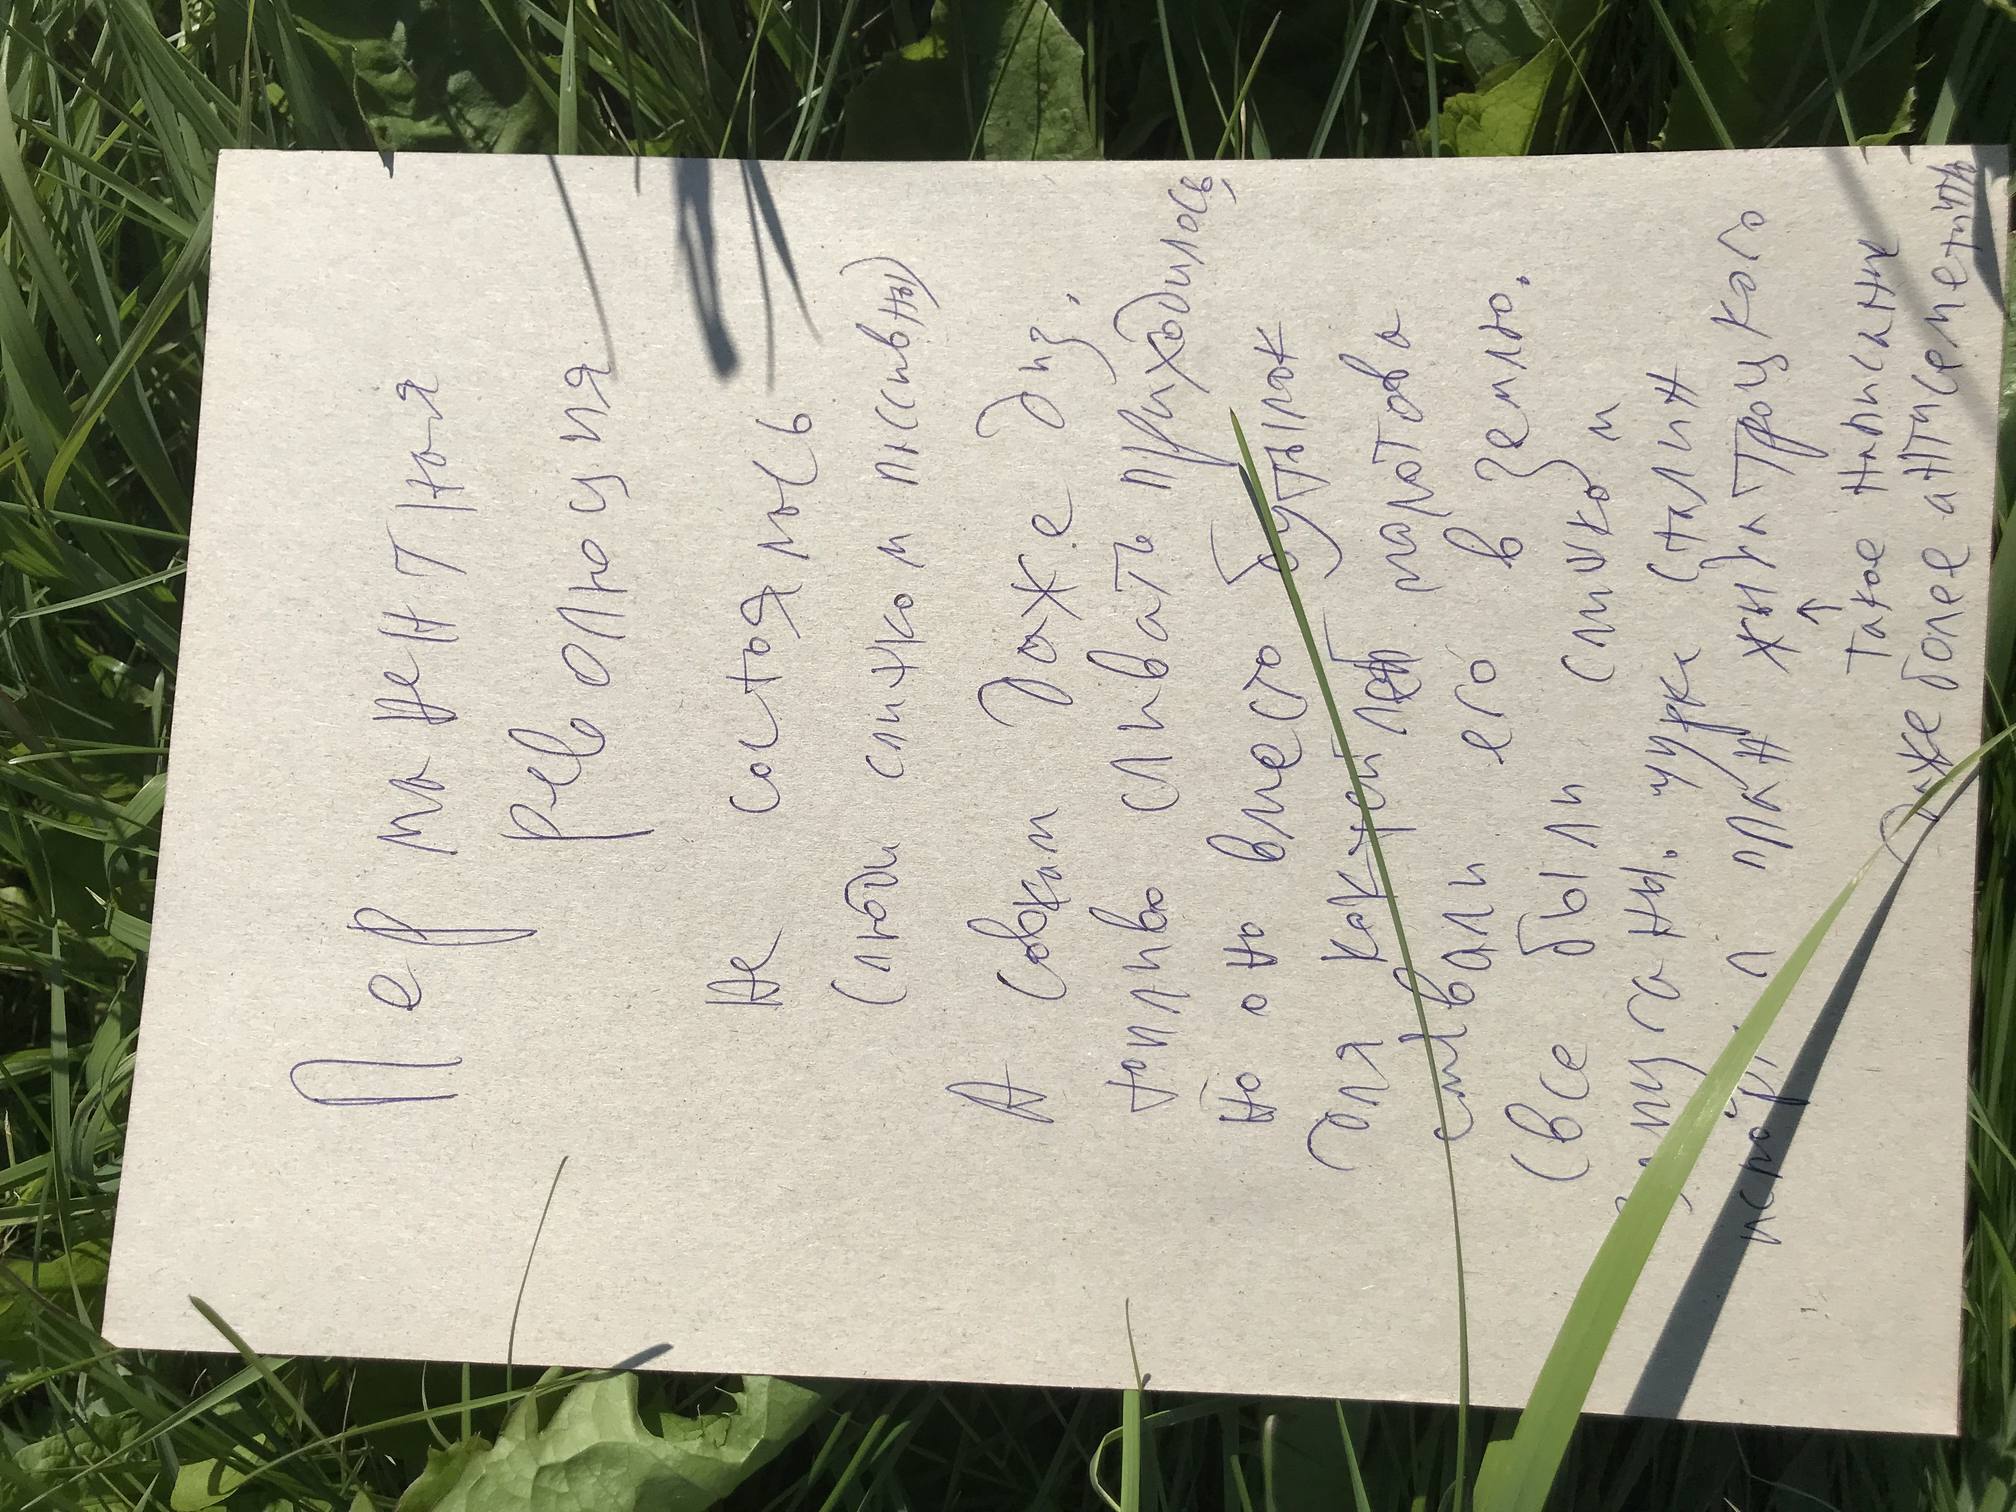 Перманентная
революция
не состоялась
(люди слишком пассивны)
А совкам даже диз.
топливо сливать приходилось,
но оно вместо бутылок
для коктейлей молотова
сливали его в землю.
(все были слишком
запуганы. чурка Сталин
испортил план жыда Троцкого
↑
Такое написание
даже более антисемитично